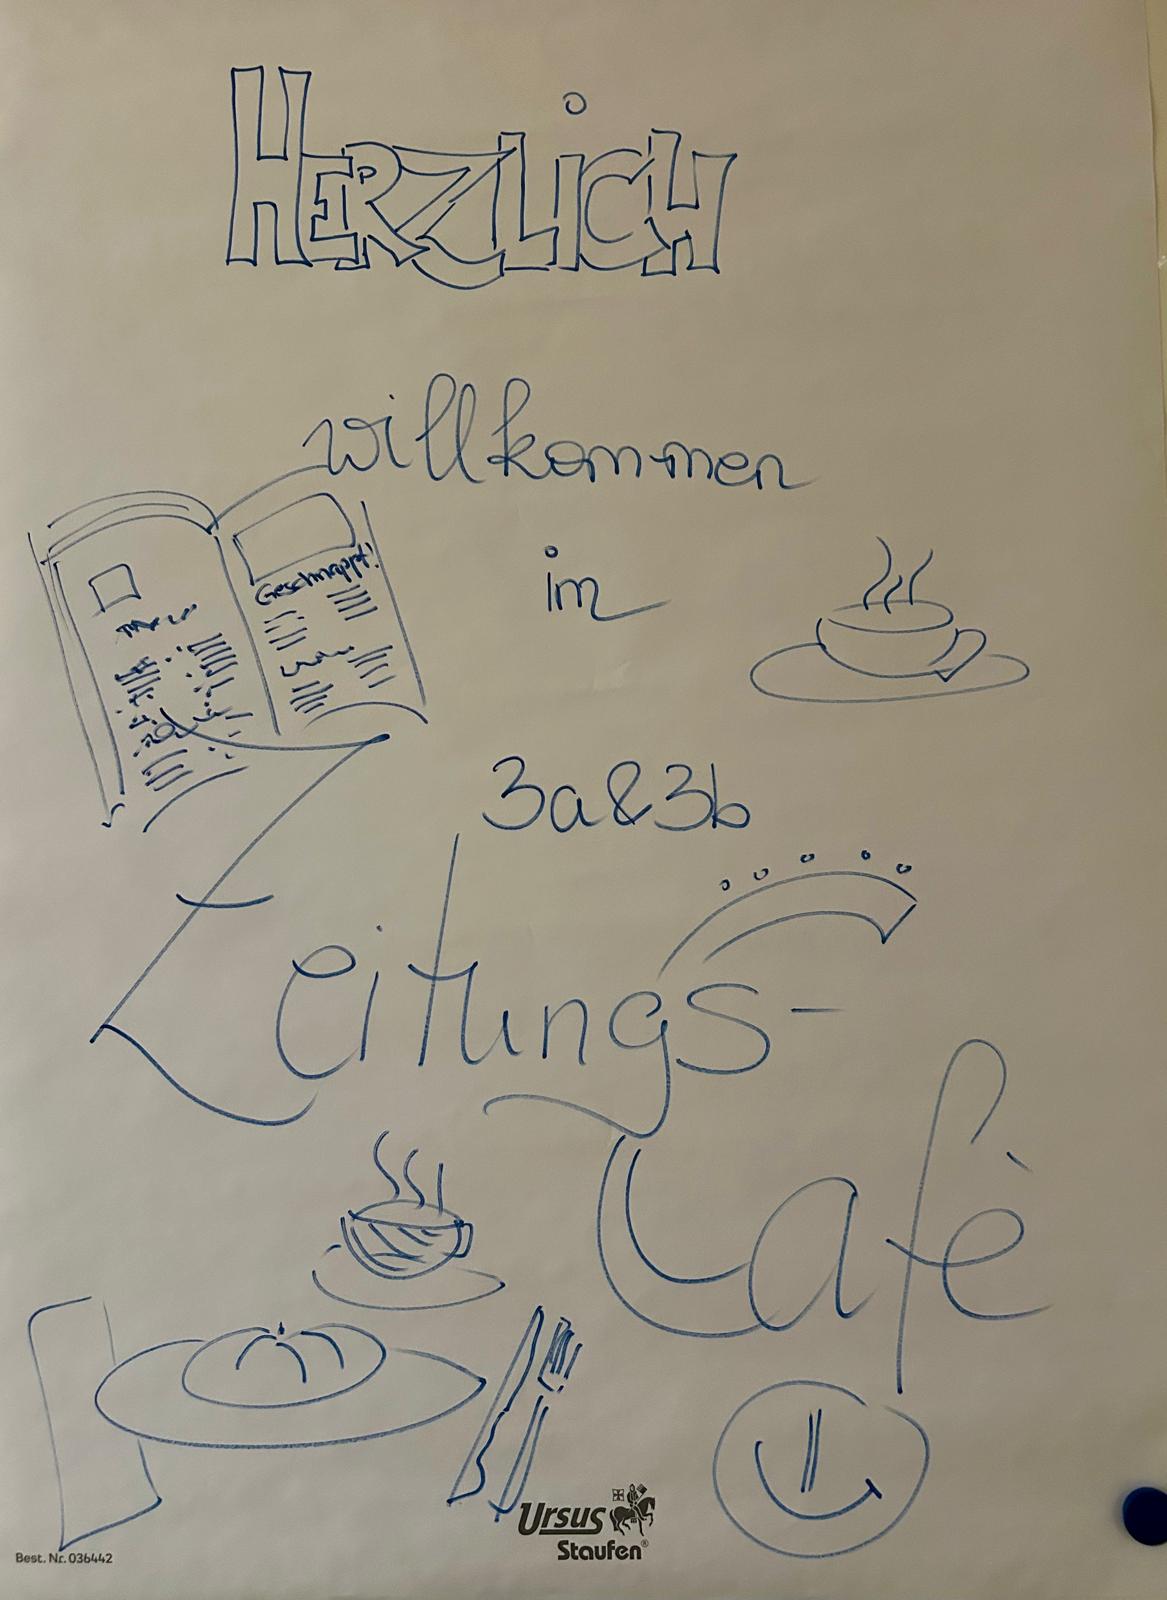 HERZLICH
willkommen
im
Geschnappt!
3a&3b
Zeitungs-
Cafè
Ursus
Staufen®
Best. Nr. 036442